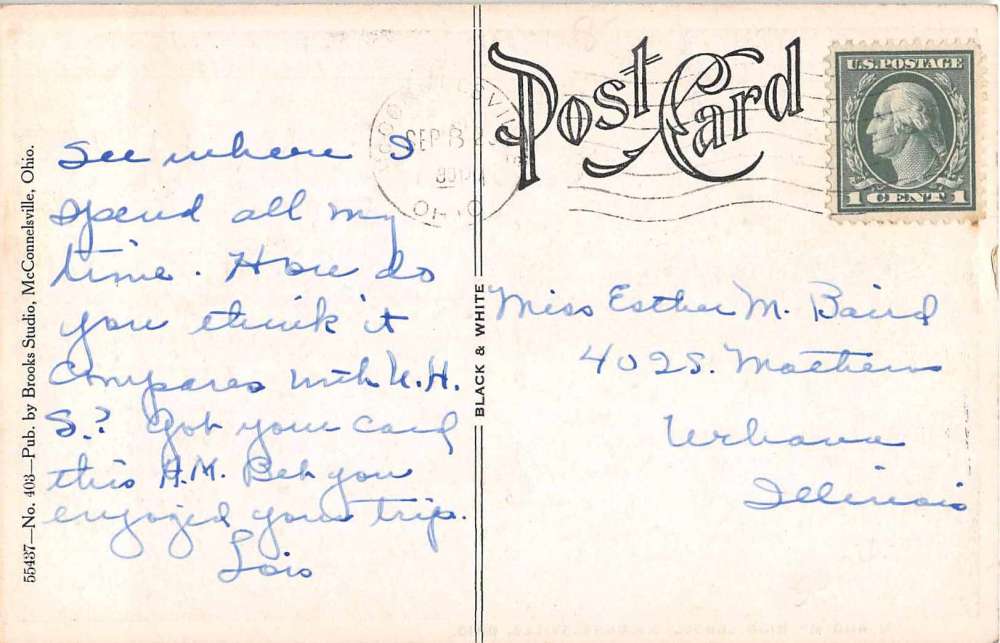 See where I
spend all my
time. How do
you think it
compares with U.H.
S.? Got your card
this A.M. Bet you
enjoyed your trip.
Lois
55437—No. 403—Pub. by Brooks Studio, McConnelsville, Ohio.
BLACK & WHITE
Post Card
SEP 13
OHIO
U.S. POSTAGE
1 CENT 1
Miss Esther M. Baird
402 S. Mathews
Urbana
Illinois